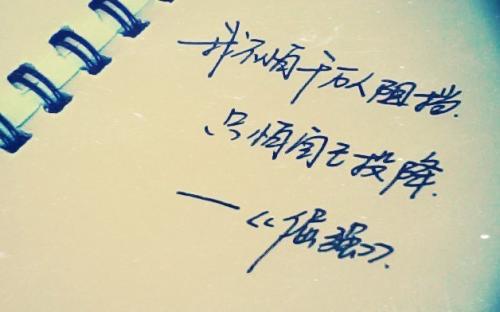 我不怕千万人阻挡.
只怕自己投降.
——《倔强》.